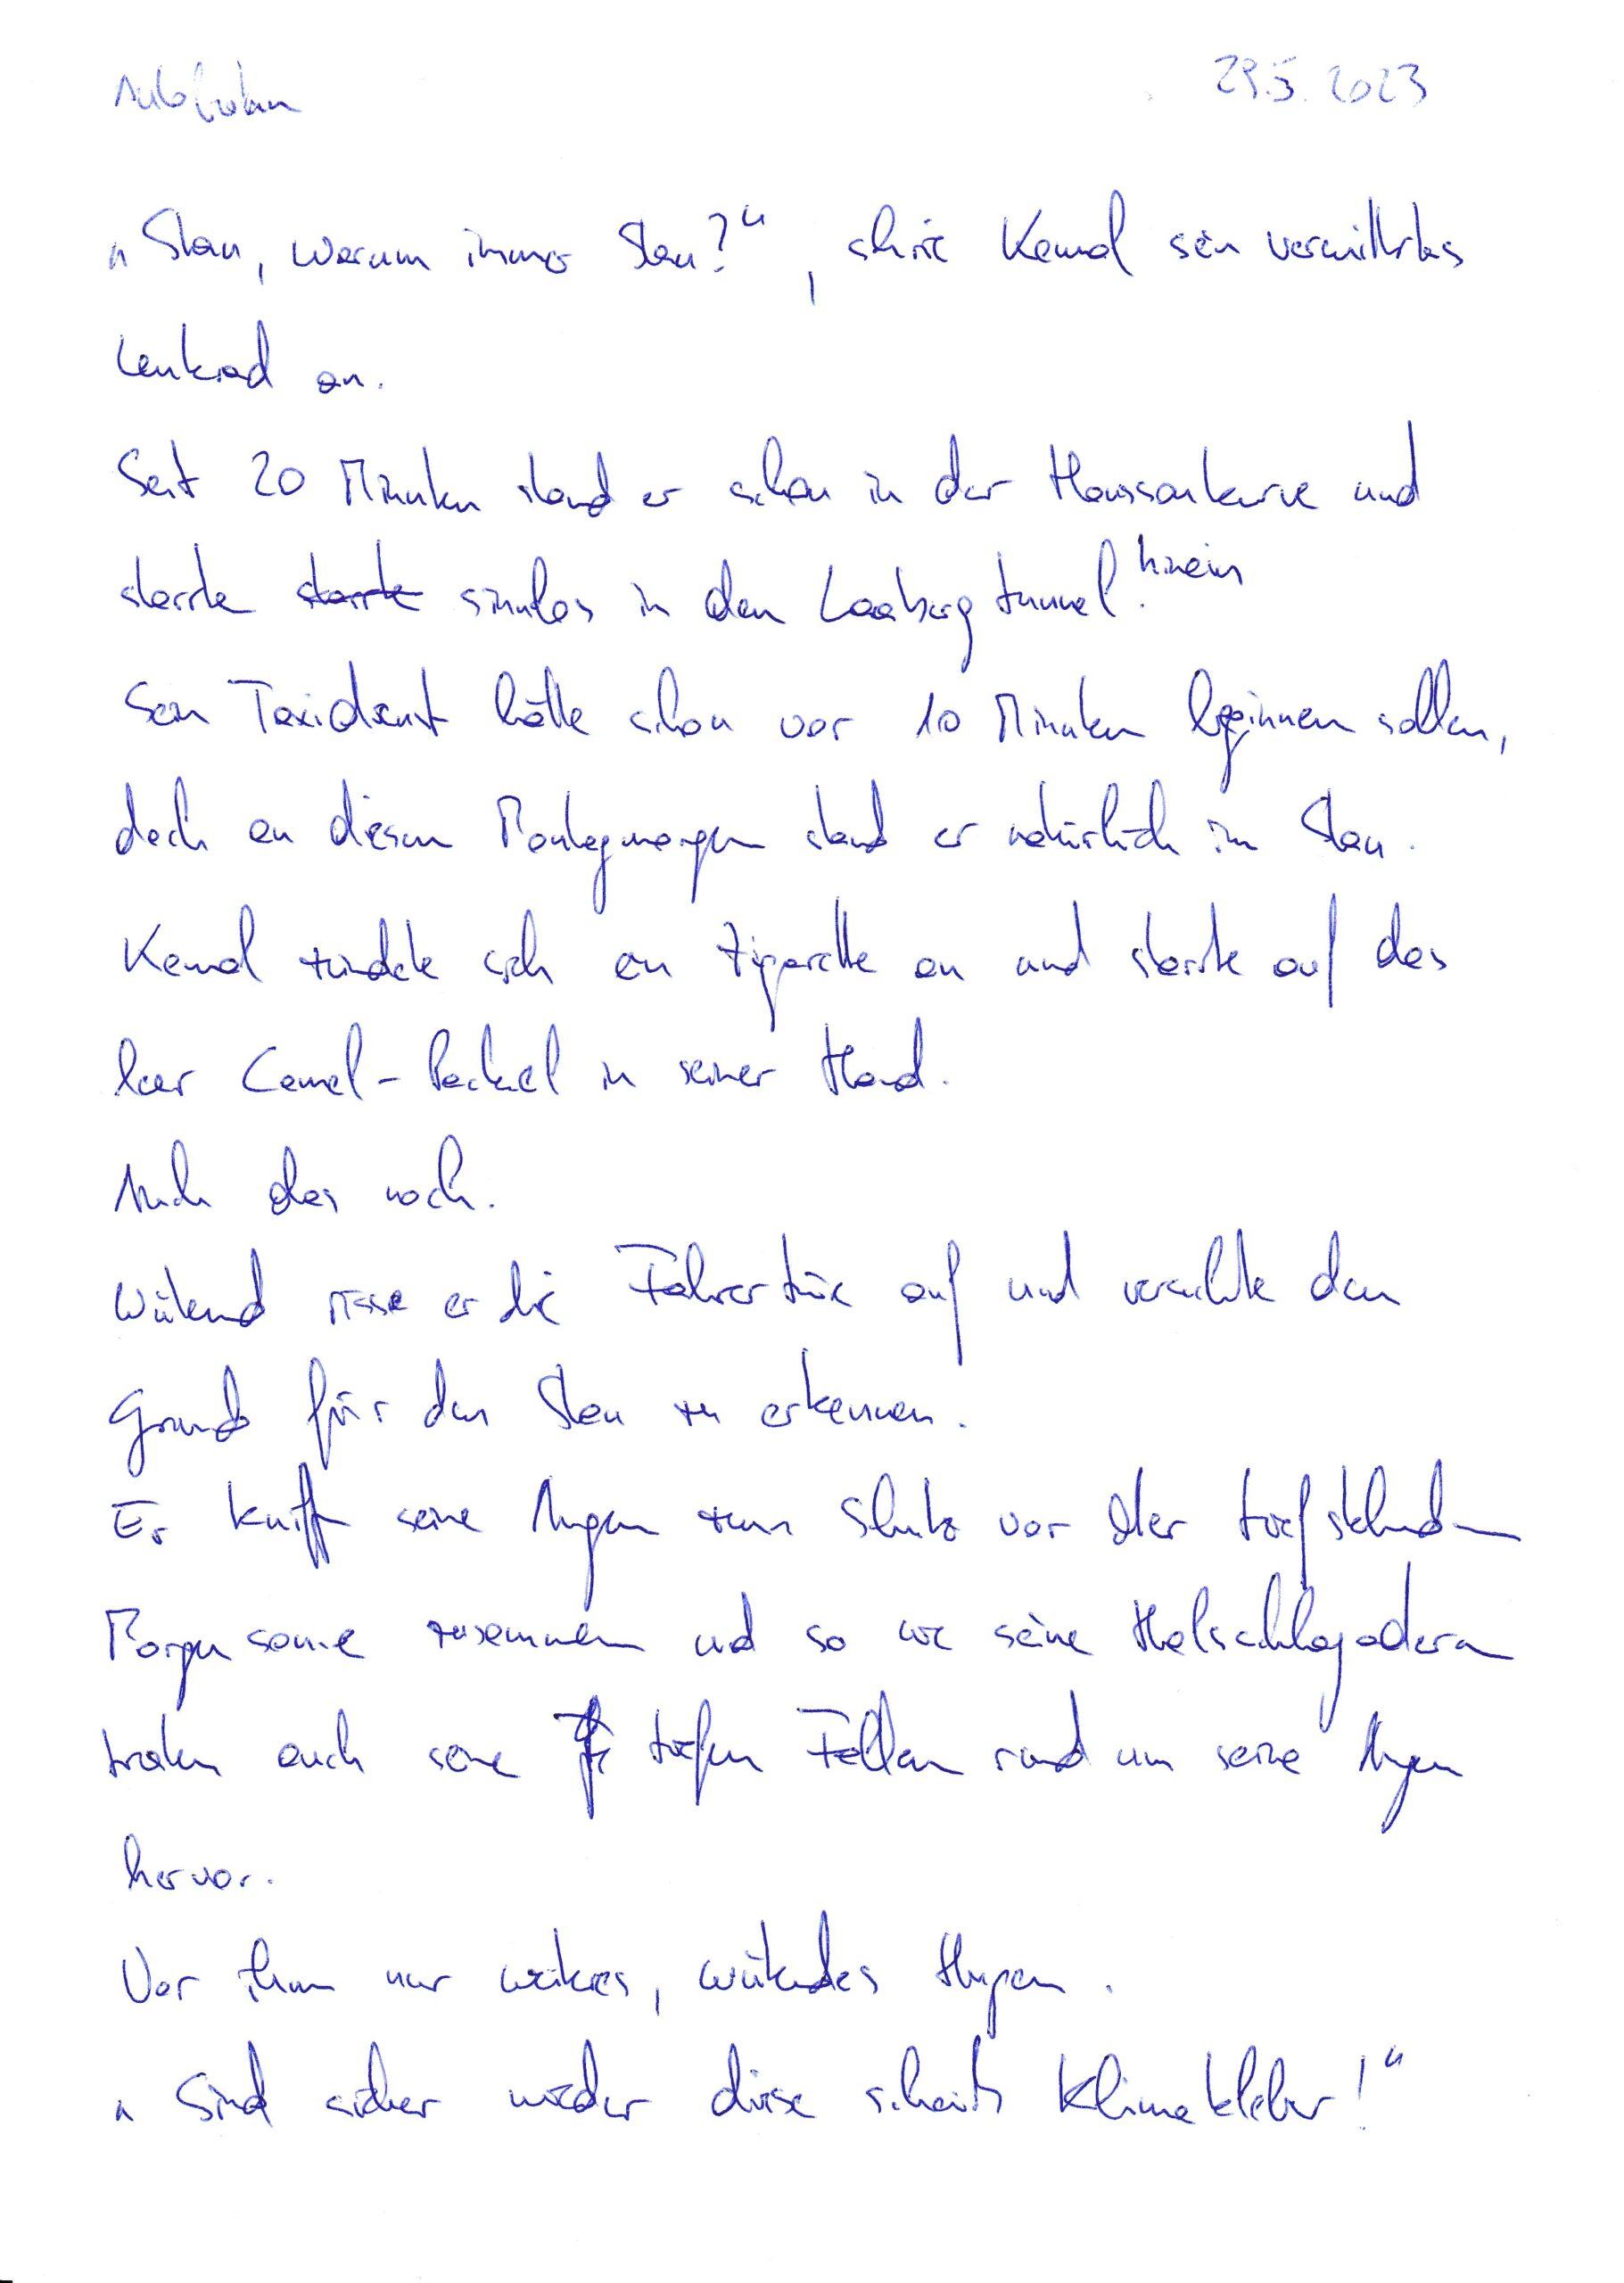 Autofahren 29.5.2023
„Stau, warum immer Stau?“, schrie Kemal sein verwittertes
Lenkrad an.
Seit 20 Minuten stand er schon in der Hanssonkurve und
starrte starrte sinnlos in den Laabergtunnel hinein.
Sein Taxidienst hätte schon vor 10 Minuten beginnen sollen,
doch an diesem Montagmorgen stand er natürlich im Stau.
Kemal zündete sich ein Zigarette an und starrte auf das
leer Camel-Packerl in seiner Hand.
Auch das noch.
Wütend risse er die Fahrertüre auf und versuchte den
Grund für den Stau zu erkennen.
Er kniff seine Augen zum Schutz vor der tiefstehenden
Morgensonne zusammen und so wie seine Halsschlagadern
traten auch seine tiefen Falten rund um seine Augen
hervor.
Vor ihm nur weiteres, wütendes Hupen.
„Sind sicher wieder diese scheiß Klimakleber!“